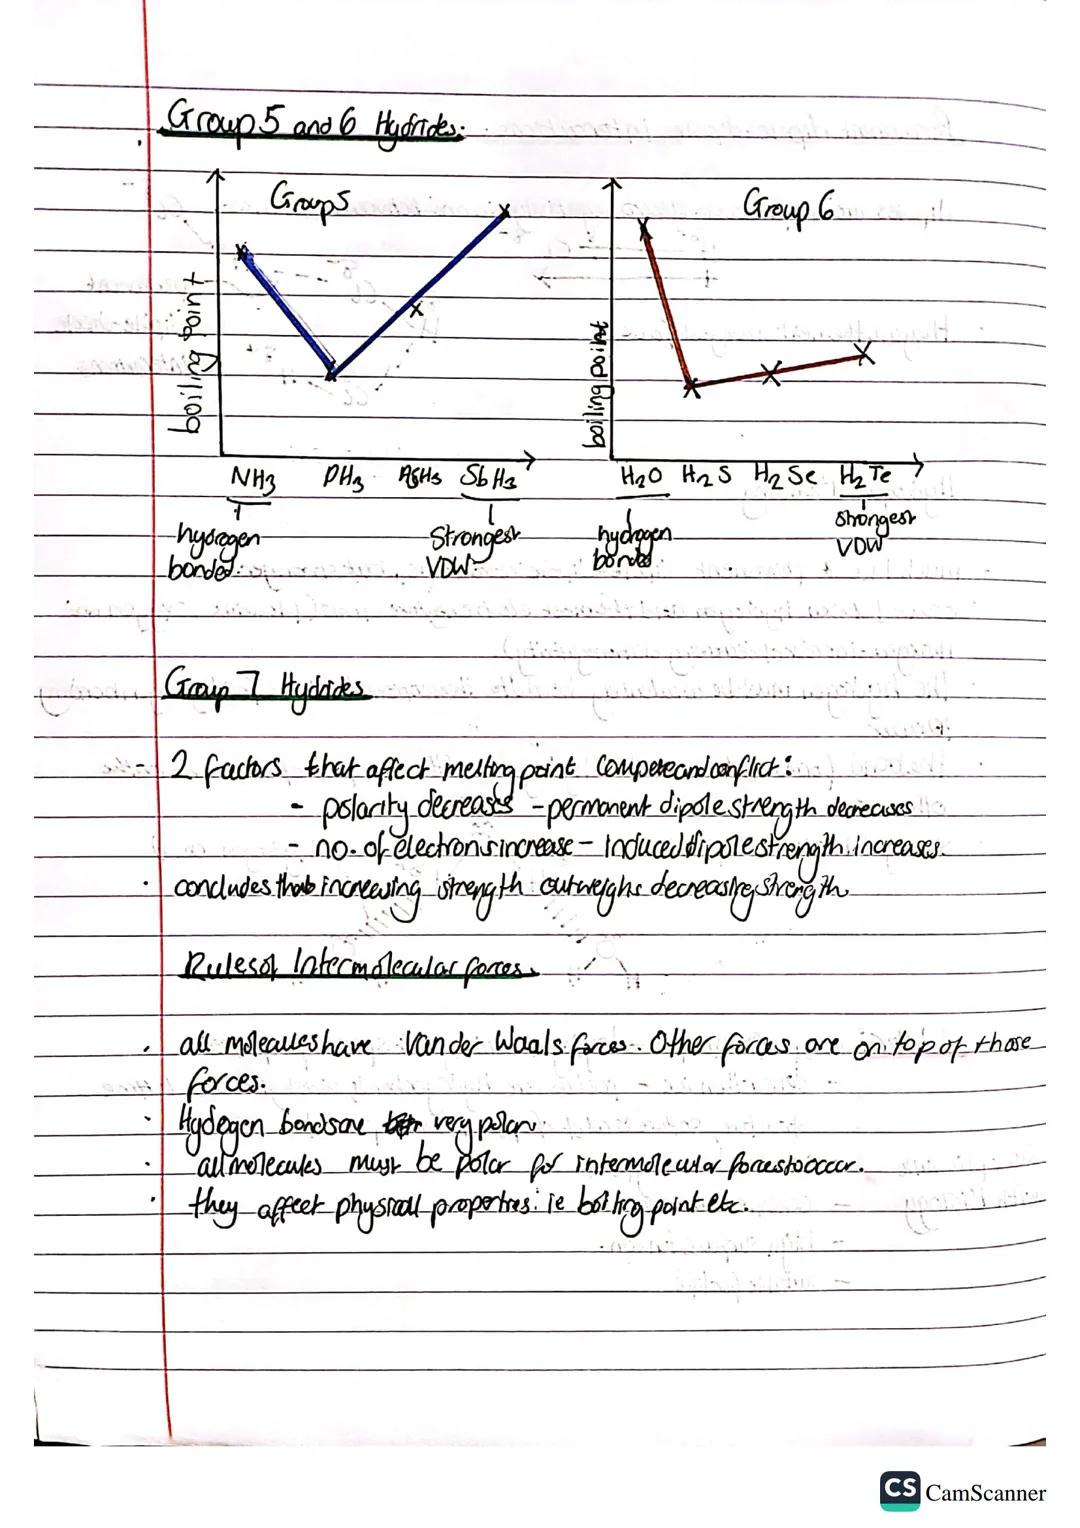 Group 5 and 6 Hydrides.
Group 5
boiling point
NH3 PH3 AsH3 SbH3
hydrogen
bonded.
Strongest
VDW
Group 6
boiling point
H2O H2S H2Se H2Te
hydrogen
bonded
strongest
VDW
Group 7 Hydrides
- 2 factors that affect melting point compete and conflict:
- polarity decreases - permanent dipole strength decreases
- no. of electrons increase - induced dipole strength increases.
· concludes that increasing strength outweighs decreasing strength
Rules of Intermolecular forces.
· all molecules have Van der Waals forces. Other forces are on top of those
forces.
· Hydogen bonds are very polar
· all molecules must be polar for intermolecular forces to occur.
· they affect physical properties. ie boiling point etc.
CS CamScanner